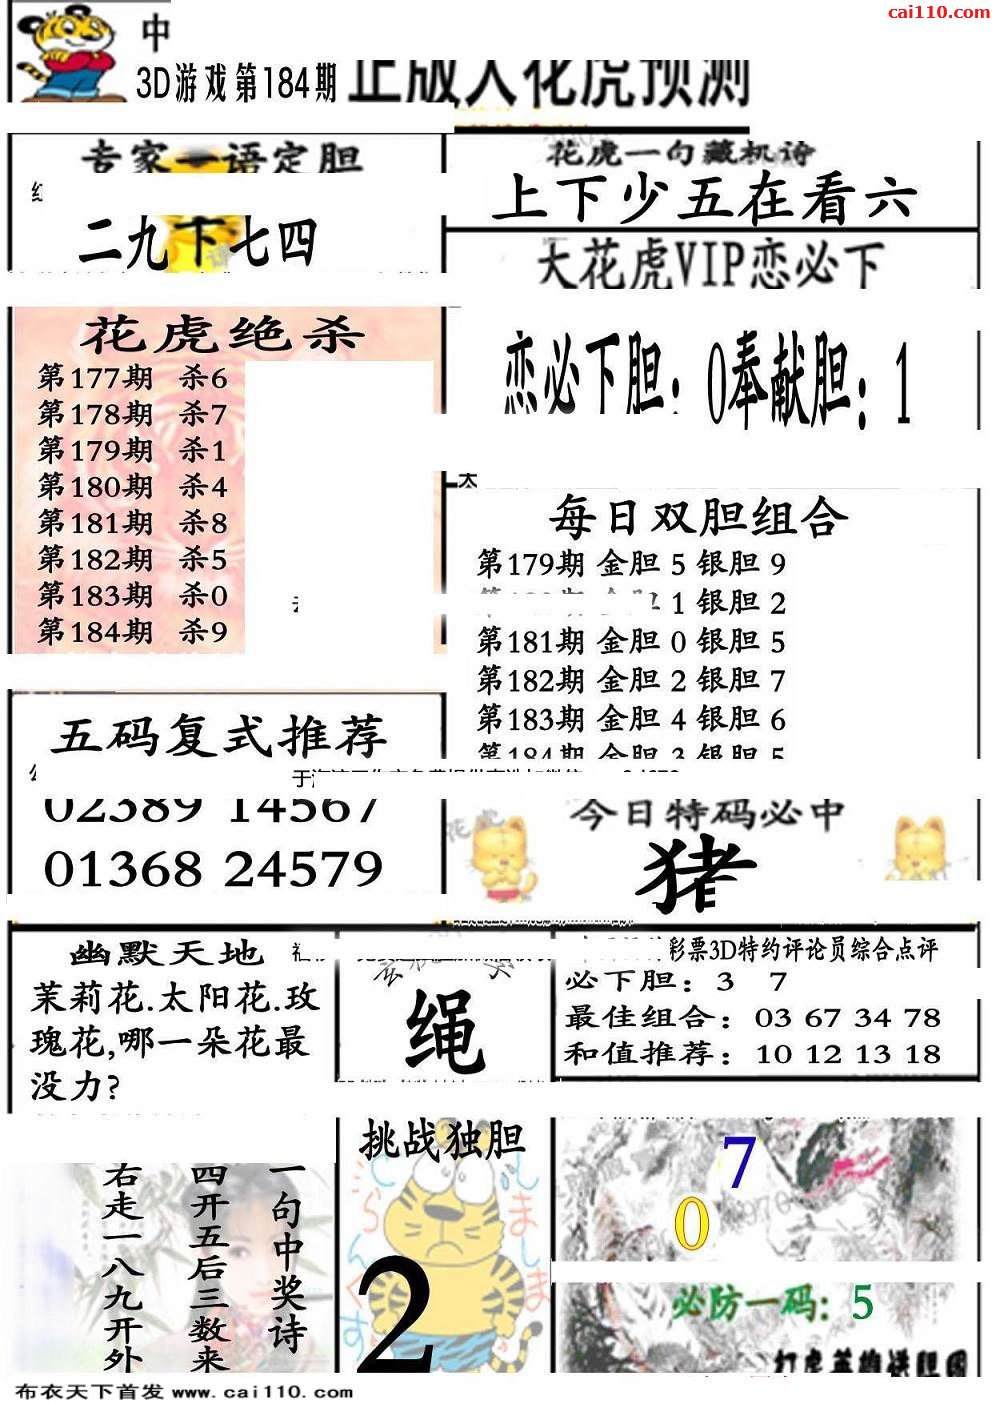 cai110.com
中
3D游戏第184期 正版大花虎预测
专家一语定胆
二九下七四
花虎一句藏机诗
上下少五在看六
大花虎VIP恋必下
恋必下胆：0奉献胆：1
花虎绝杀
第177期 杀6
第178期 杀7
第179期 杀1
第180期 杀4
第181期 杀8
第182期 杀5
第183期 杀0
第184期 杀9
每日双胆组合
第179期 金胆 5 银胆 9
1 银胆 2
第181期 金胆 0 银胆 5
第182期 金胆 2 银胆 7
第183期 金胆 4 银胆 6
第184期 金胆 3 银胆 5
五码复式推荐
02389 14567
01368 24579
今日特码必中
猪
幽默天地
茉莉花.太阳花.玫
瑰花,哪一朵花最
没力?
绳
彩票3D特约评论员综合点评
必下胆：3 7
最佳组合：03 67 34 78
和值推荐：10 12 13 18
一句中奖诗
四开五后三数来
右走一八九开外
挑战独胆
2
7
0
必防一码: 5
打虎英雄进胆图
布衣天下首发 www.cai110.com